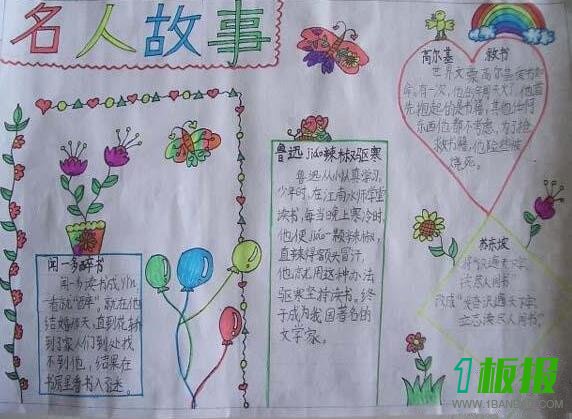 名人故事
高尔基 救书
世界文豪高尔基爱书如
命。有一次，他的房间失火了，他首
先抱起的是书籍，其他任何
东西他都不考虑，为了抢
救书籍，他险些被
烧死。
鲁迅jiáo辣椒驱寒
鲁迅从小认真学习。
少年时，在江南水师学堂
读书，每当晚上寒冷时，
他便jiáo一颗辣椒，
直辣得额头冒汗。
他就用这种办法
驱寒坚持读书。终
于成为我国著名的
文学家。
闻一多醉书
闻一多读书成yǐn，
一看就"醉"，就在他
结婚那天，直到花轿
到了家人们到处找
不到他，结果在
书房里看书入了迷。
苏东坡
"识遍天下字，
读尽人间书"。
改成"发奋识遍天下字，
立志读尽人间书"。
1板报
WWW.1BANBAO.COM